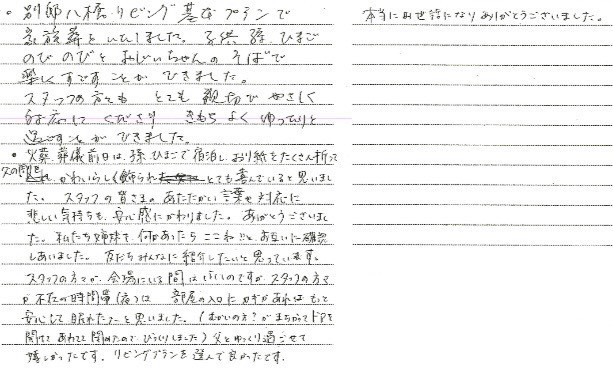 ・別邸八橋リビング葬なプランで
家族葬をいたしました。子供 孫 ひまご
のびのびとおじいちゃんのそばで
楽しくすごすことができました。
スタッフの方とも とても親切でやさしく
対応してくださり きもちよくゆったりと
過ごすことができました。
・火葬 葬儀前日は、孫、ひまごで宿泊し、おり紙をたくさん折って
父の周り かわいらしく飾られ とても喜んでいると思いまし
た。 スタッフの皆さまの あたたかい言葉や対応に
悲しい気持ちも、安心感にかわりました。ありがとうございまし
た。私たち姉妹も 何かあったら ここね と お互いに確認
しあいました。 友だちみんなに紹介したいと思っています。
スタッフの方々が、会場にいる間はいいのですが スタッフの方々
が不在の時間帯(夜)は 部屋の入口にカギがあれば もっと
安心して眠れたなーと思いました。(むかいの方?がまちがってドアを
開けて あわてて閉めたので びっくりしました)父とゆっくり過ごせて
嬉しかったです。リビングプランを選んで良かったです。
本当にお世話になりありがとうございました。